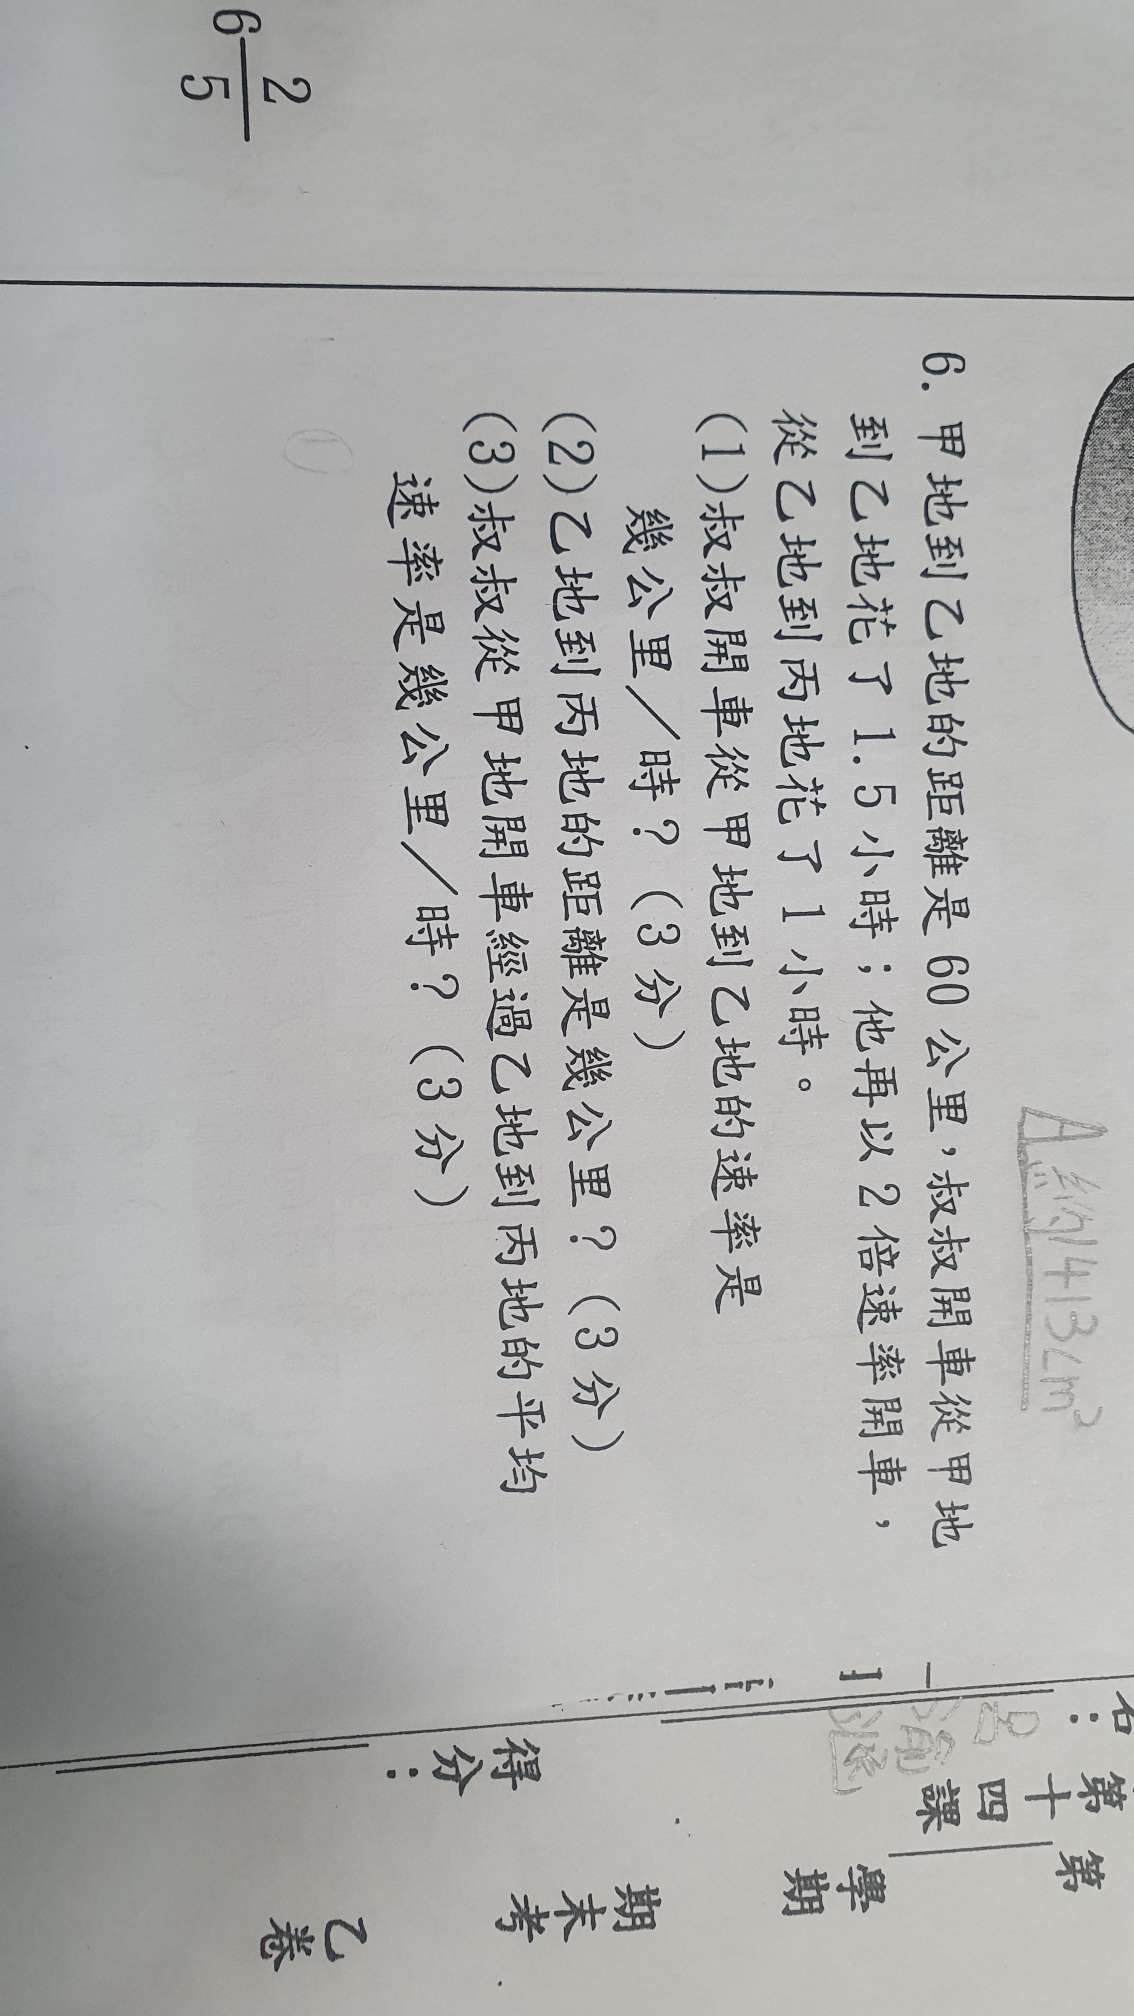 6 2/5
A:約1413cm²
6. 甲地到乙地的距離是 60 公里，叔叔開車從甲地
到乙地花了 1.5 小時；他再以 2 倍速率開車，
從乙地到丙地花了 1 小時。
(1)叔叔開車從甲地到乙地的速率是
幾公里／時？（3 分）
(2)乙地到丙地的距離是幾公里？（3 分）
(3)叔叔從甲地開車經過乙地到丙地的平均
速率是幾公里／時？（3 分）
第十四課
得分：
第
學期
期末考
乙卷